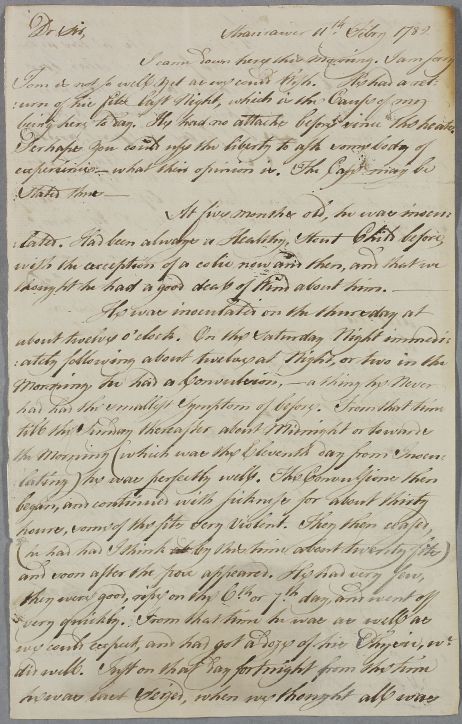 Dr Sir, Stranraer 11th Febry 1789.
I came down here this Morning. I am sorry
Tom is not so well yet as we could wish. He had a ret-
-urn of his fits last Night, which is the Cause of my
being here to day. He had no attacks before since
Perhaps you could use the liberty to ask somebody of
experience — what their opinion is. The Case may be
Stated thus —
At five months old, he was inocu-
-lated. Had been always a Healthy, Stout Child before,
with the exception of a colic now and then, and that we
thought he had a good deal of Wind about him. —
He was inoculated on the thursday at
about twelve o'clock. On the Saturday Night immedi-
-ately following about twelve at Night, or two in the
Morning he had a Convulsion, — a thing he Never
had had the smallest Symptom of before. From that time
till the Sunday thereafter about Midnight or towards
the Morning (which was the Eleventh day from Inocu-
-lating) he was perfectly well. The Convulsions then
began, and continued with sickness for about thirty
hours, some of the fits very Violent. They then ceased,
(he had had I think by this time about twenty fits)
and soon after the pox appeared. He had very few,
they were good, ripe on the 6th or 7th day, and went off
very quickly. From that time he was as well as
we could expect, and had got a dose of his Physic, wc
did well. Just on that day fortnight from the time
he was last seized, when we thought all was